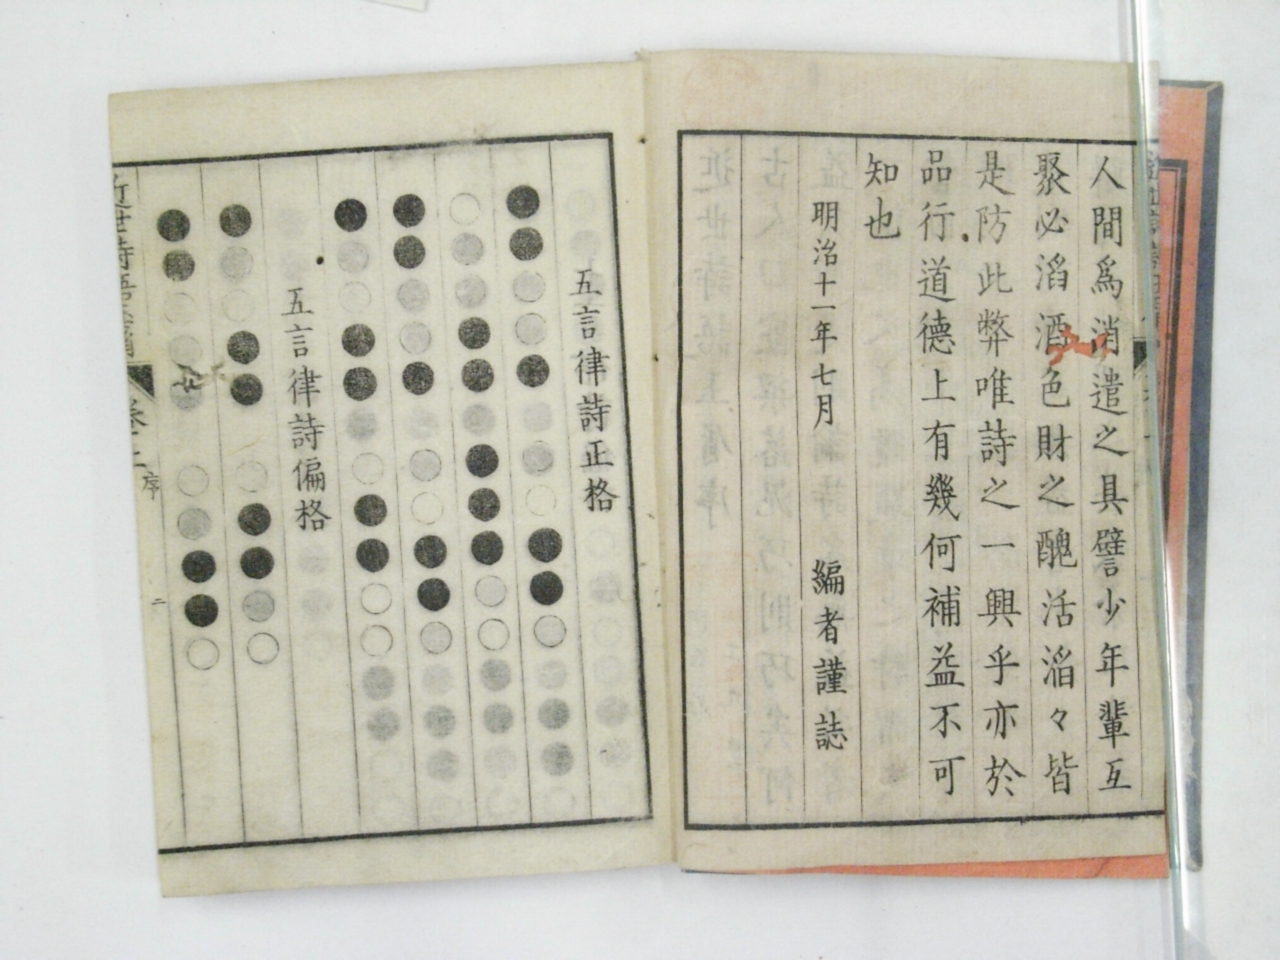 人間爲消遣之具譬少年輩互
聚必滔酒色財之醜活滔々皆
是防此弊唯詩之一興乎亦於
品行道德上有幾何補益不可
知也
明治十一年七月　編者謹誌
五言律詩正格
五言律詩偏格
近世詩語玉屑
卷上 序 二